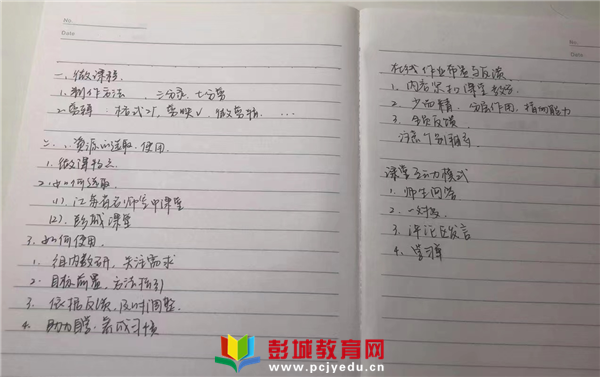 No.
Date
一、微课程
1. 制作方法、三分录、七分剪
2. 剪辑:格式工厂、剪映、
二、资源的选取、使用
1. 微课特点
2. 如何选取
(1). 江苏省名师空中课堂
(2). 彭城课堂
3. 如何使用
1. 组内教研,关注需求
2. 目标前置,方法指引
3. 依据反馈,及时调整
4. 助力自学,养成习惯
No.
Date
在线作业布置与反馈
1. 内容紧扣课堂教学
2. 少而精,分层作用,指向能力
3. 反馈
注意个别
课堂互动模式
1. 师生问答
2. 一对多
3. 评论区发言
4. 学习单
彭城教育网
www.pcjyedu.cn